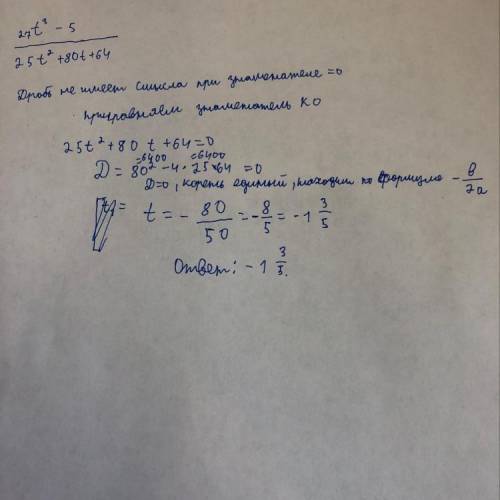 27t³ - 5
25t² + 80t + 64
Дробь не имеет смысла при знаменателе = 0
приравняем знаменатель к 0
25t² + 80 t + 64 = 0
=6400 =6400
D = 80² - 4 · 25 · 64 = 0
D=0, корень единый, находим по формуле - в/2a
t = - 80/50 = - 8/5 = - 1 3/5
Ответ: - 1 3/5.